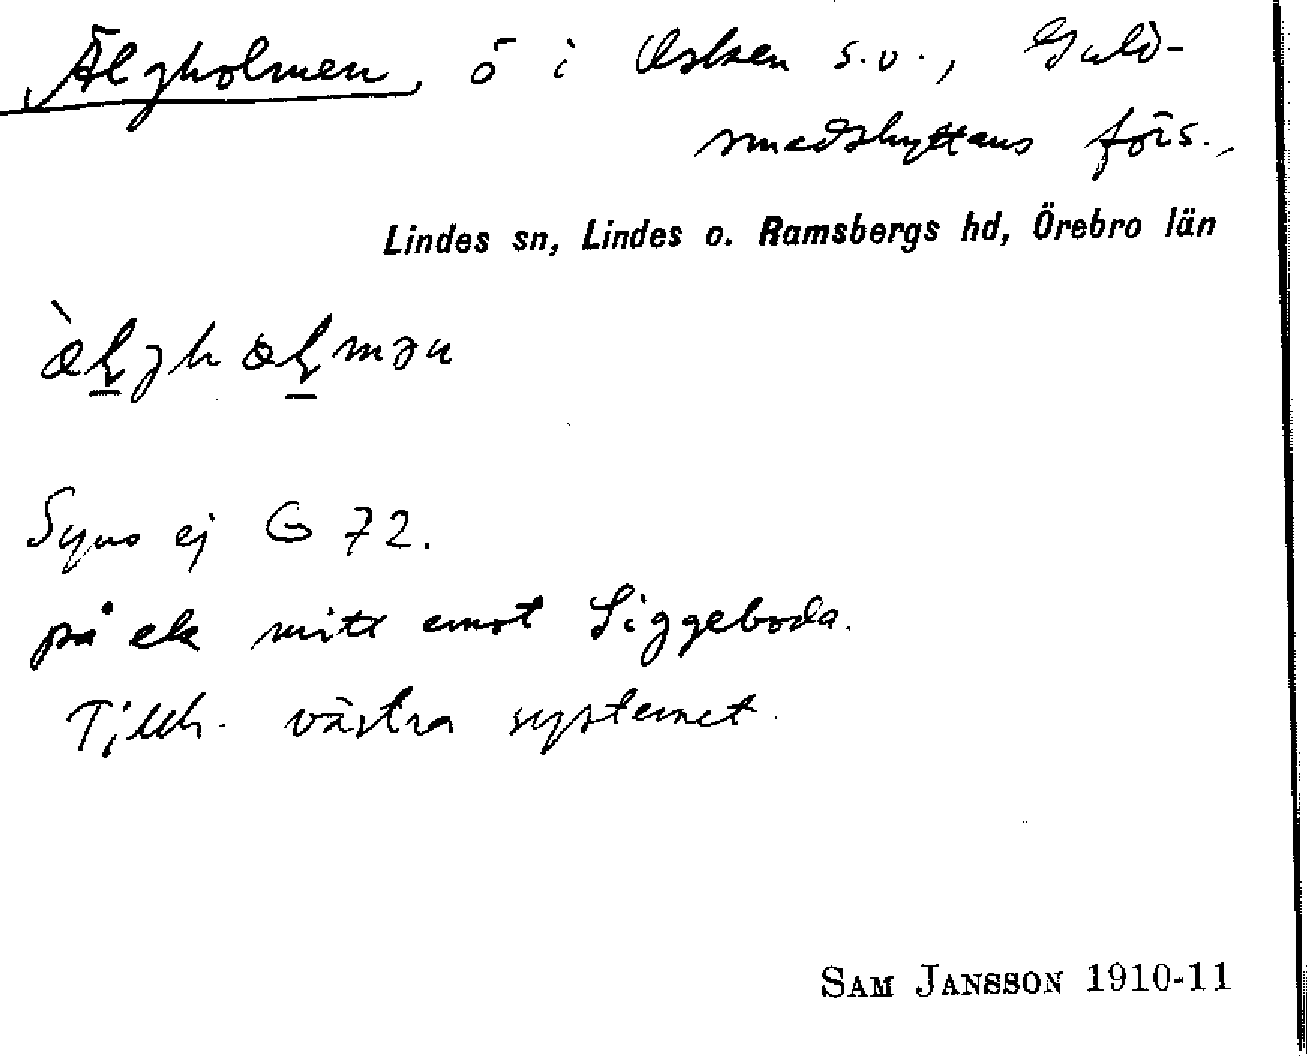 Älgholmen, ö i Usken s.v., Guld-
smedshyttans förs.,
Lindes sn, Lindes o. Ramsbergs hd, Örebro län
Syns ej G 72.
på ek mitt emot Siggeboda.
Tillh. västra systemet.
SAM JANSSON 1910-11